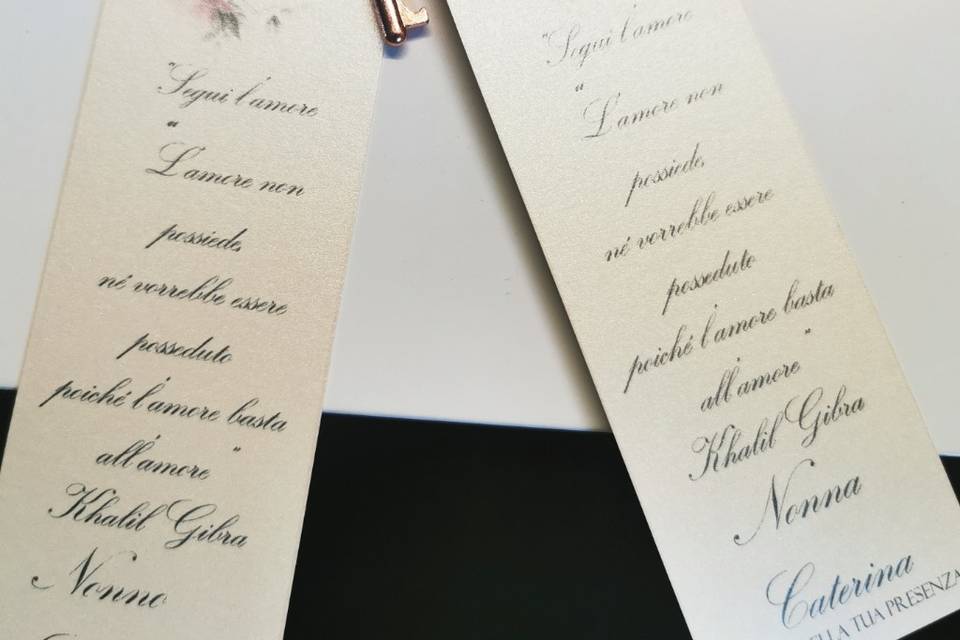 "Segui l'amore
"
L'amore non
possiede,
né vorrebbe essere
posseduto
poiché l'amore basta
all'amore "
Khalil Gibra
Nonno
"Segui l'amore
"
L'amore non
possiede,
né vorrebbe essere
posseduto
poiché l'amore basta
all'amore "
Khalil Gibra
Nonna
Caterina
TUA PRESENZA